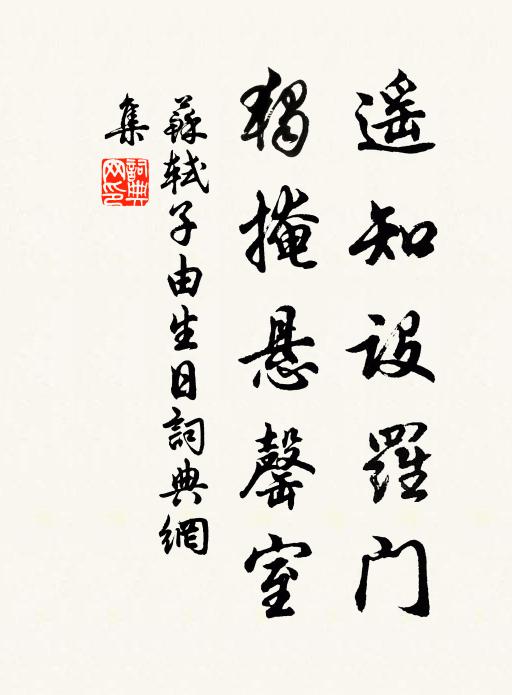 遥知设羅门
獨掩悬罄室
蘇轼子由生日詞典網
集
詞典
网印